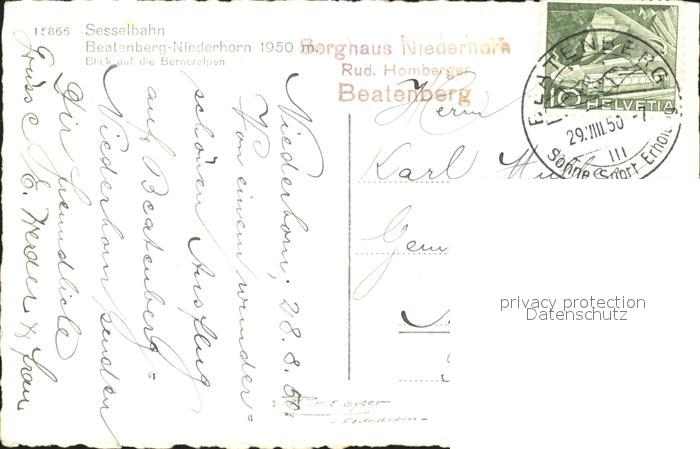 15866 Sesselbahn
Beatenberg-Niederhorn 1950 m
Blick auf die Berneralpen
Berghaus Niederhorn
Rud. Homberger
Beatenberg
HELVETIA
BEATENBERG
29.VIII.50
III
Sonne Sport Erholu
Herrn
Karl
Gem
privacy protection
Datenschutz
Niederhorn, 28.8.50.
Von einem wunder-
schönen Ausflug
auf Beatenberg-
Niederhorn senden
Dir freundliche
Grüsse E. Herder & Frau